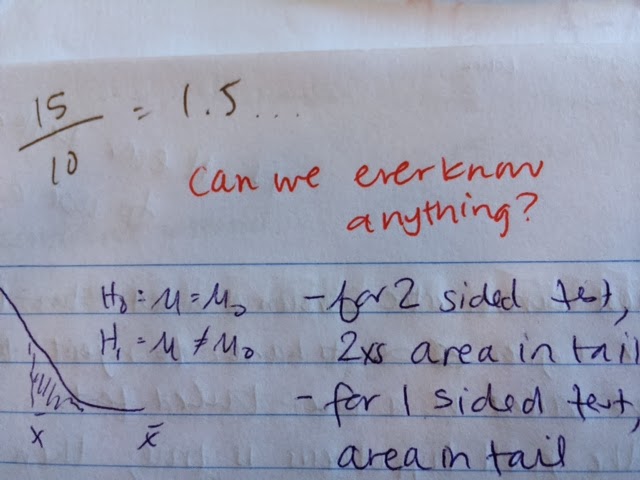 15
10
= 1.5...
Can we ever know
anything?
H₀: μ = μ₀
H₁ = μ ≠ μ₀
- for 2 sided test,
2xs area in tail
- for 1 sided test,
area in tail
x̄
x̄